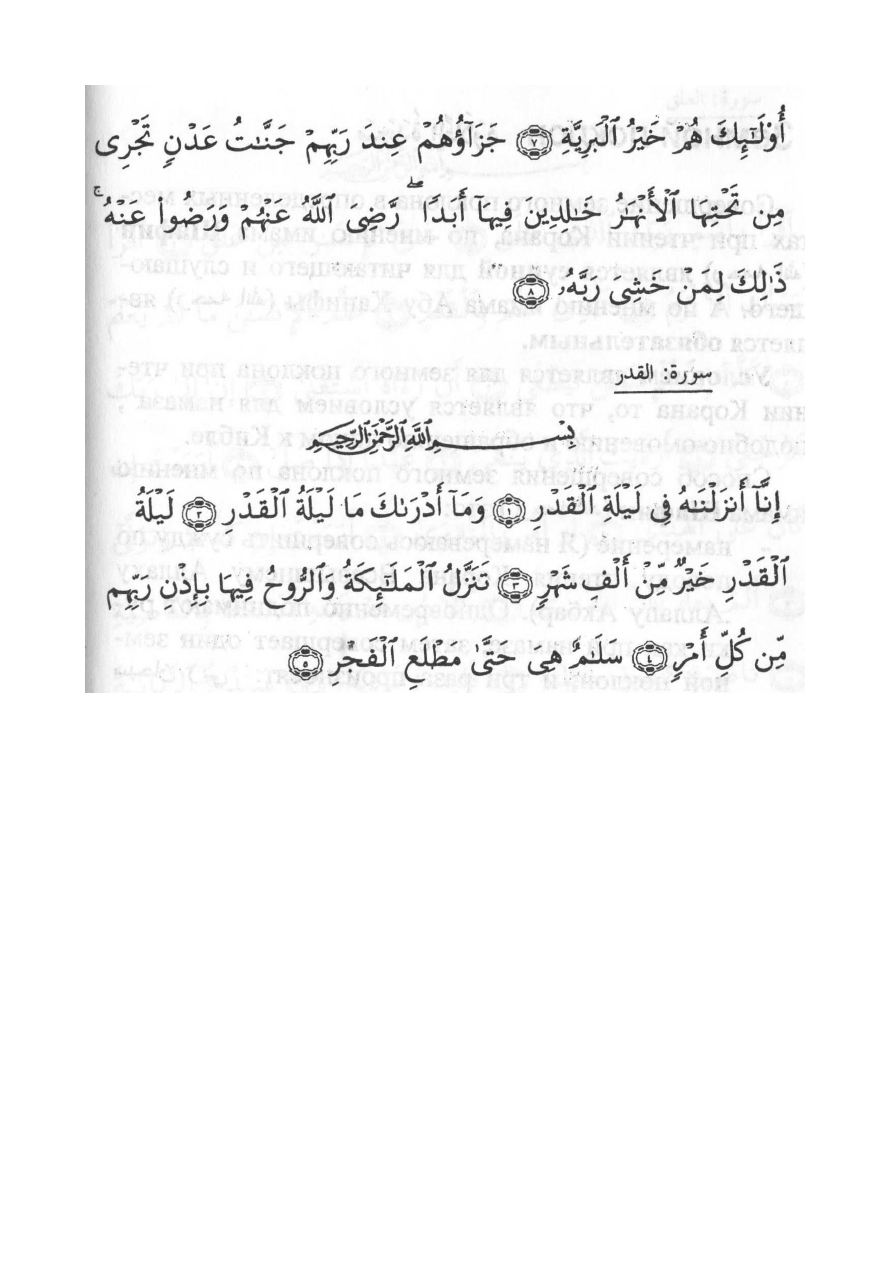 أُوْلَٰٓئِكَ هُمْ خَيْرُ ٱلْبَرِيَّةِ ۝٧ جَزَآؤُهُمْ عِندَ رَبِّهِمْ جَنَّٰتُ عَدْنٍ تَجْرِى
مِن تَحْتِهَا ٱلْأَنْهَٰرُ خَٰلِدِينَ فِيهَآ أَبَدًا ۖ رَّضِىَ ٱللَّهُ عَنْهُمْ وَرَضُوا۟ عَنْهُ ۚ
ذَٰلِكَ لِمَنْ خَشِىَ رَبَّهُۥ ۝٨
سورة: القدر
بِسْمِ ٱللَّهِ ٱلرَّحْمَٰنِ ٱلرَّحِيمِ
إِنَّآ أَنزَلْنَٰهُ فِى لَيْلَةِ ٱلْقَدْرِ ۝١ وَمَآ أَدْرَىٰكَ مَا لَيْلَةُ ٱلْقَدْرِ ۝٢ لَيْلَةُ
ٱلْقَدْرِ خَيْرٌ مِّنْ أَلْفِ شَهْرٍ ۝٣ تَنَزَّلُ ٱلْمَلَٰٓئِكَةُ وَٱلرُّوحُ فِيهَا بِإِذْنِ رَبِّهِم
مِّن كُلِّ أَمْرٍ ۝٤ سَلَٰمٌ هِىَ حَتَّىٰ مَطْلَعِ ٱلْفَجْرِ ۝٥